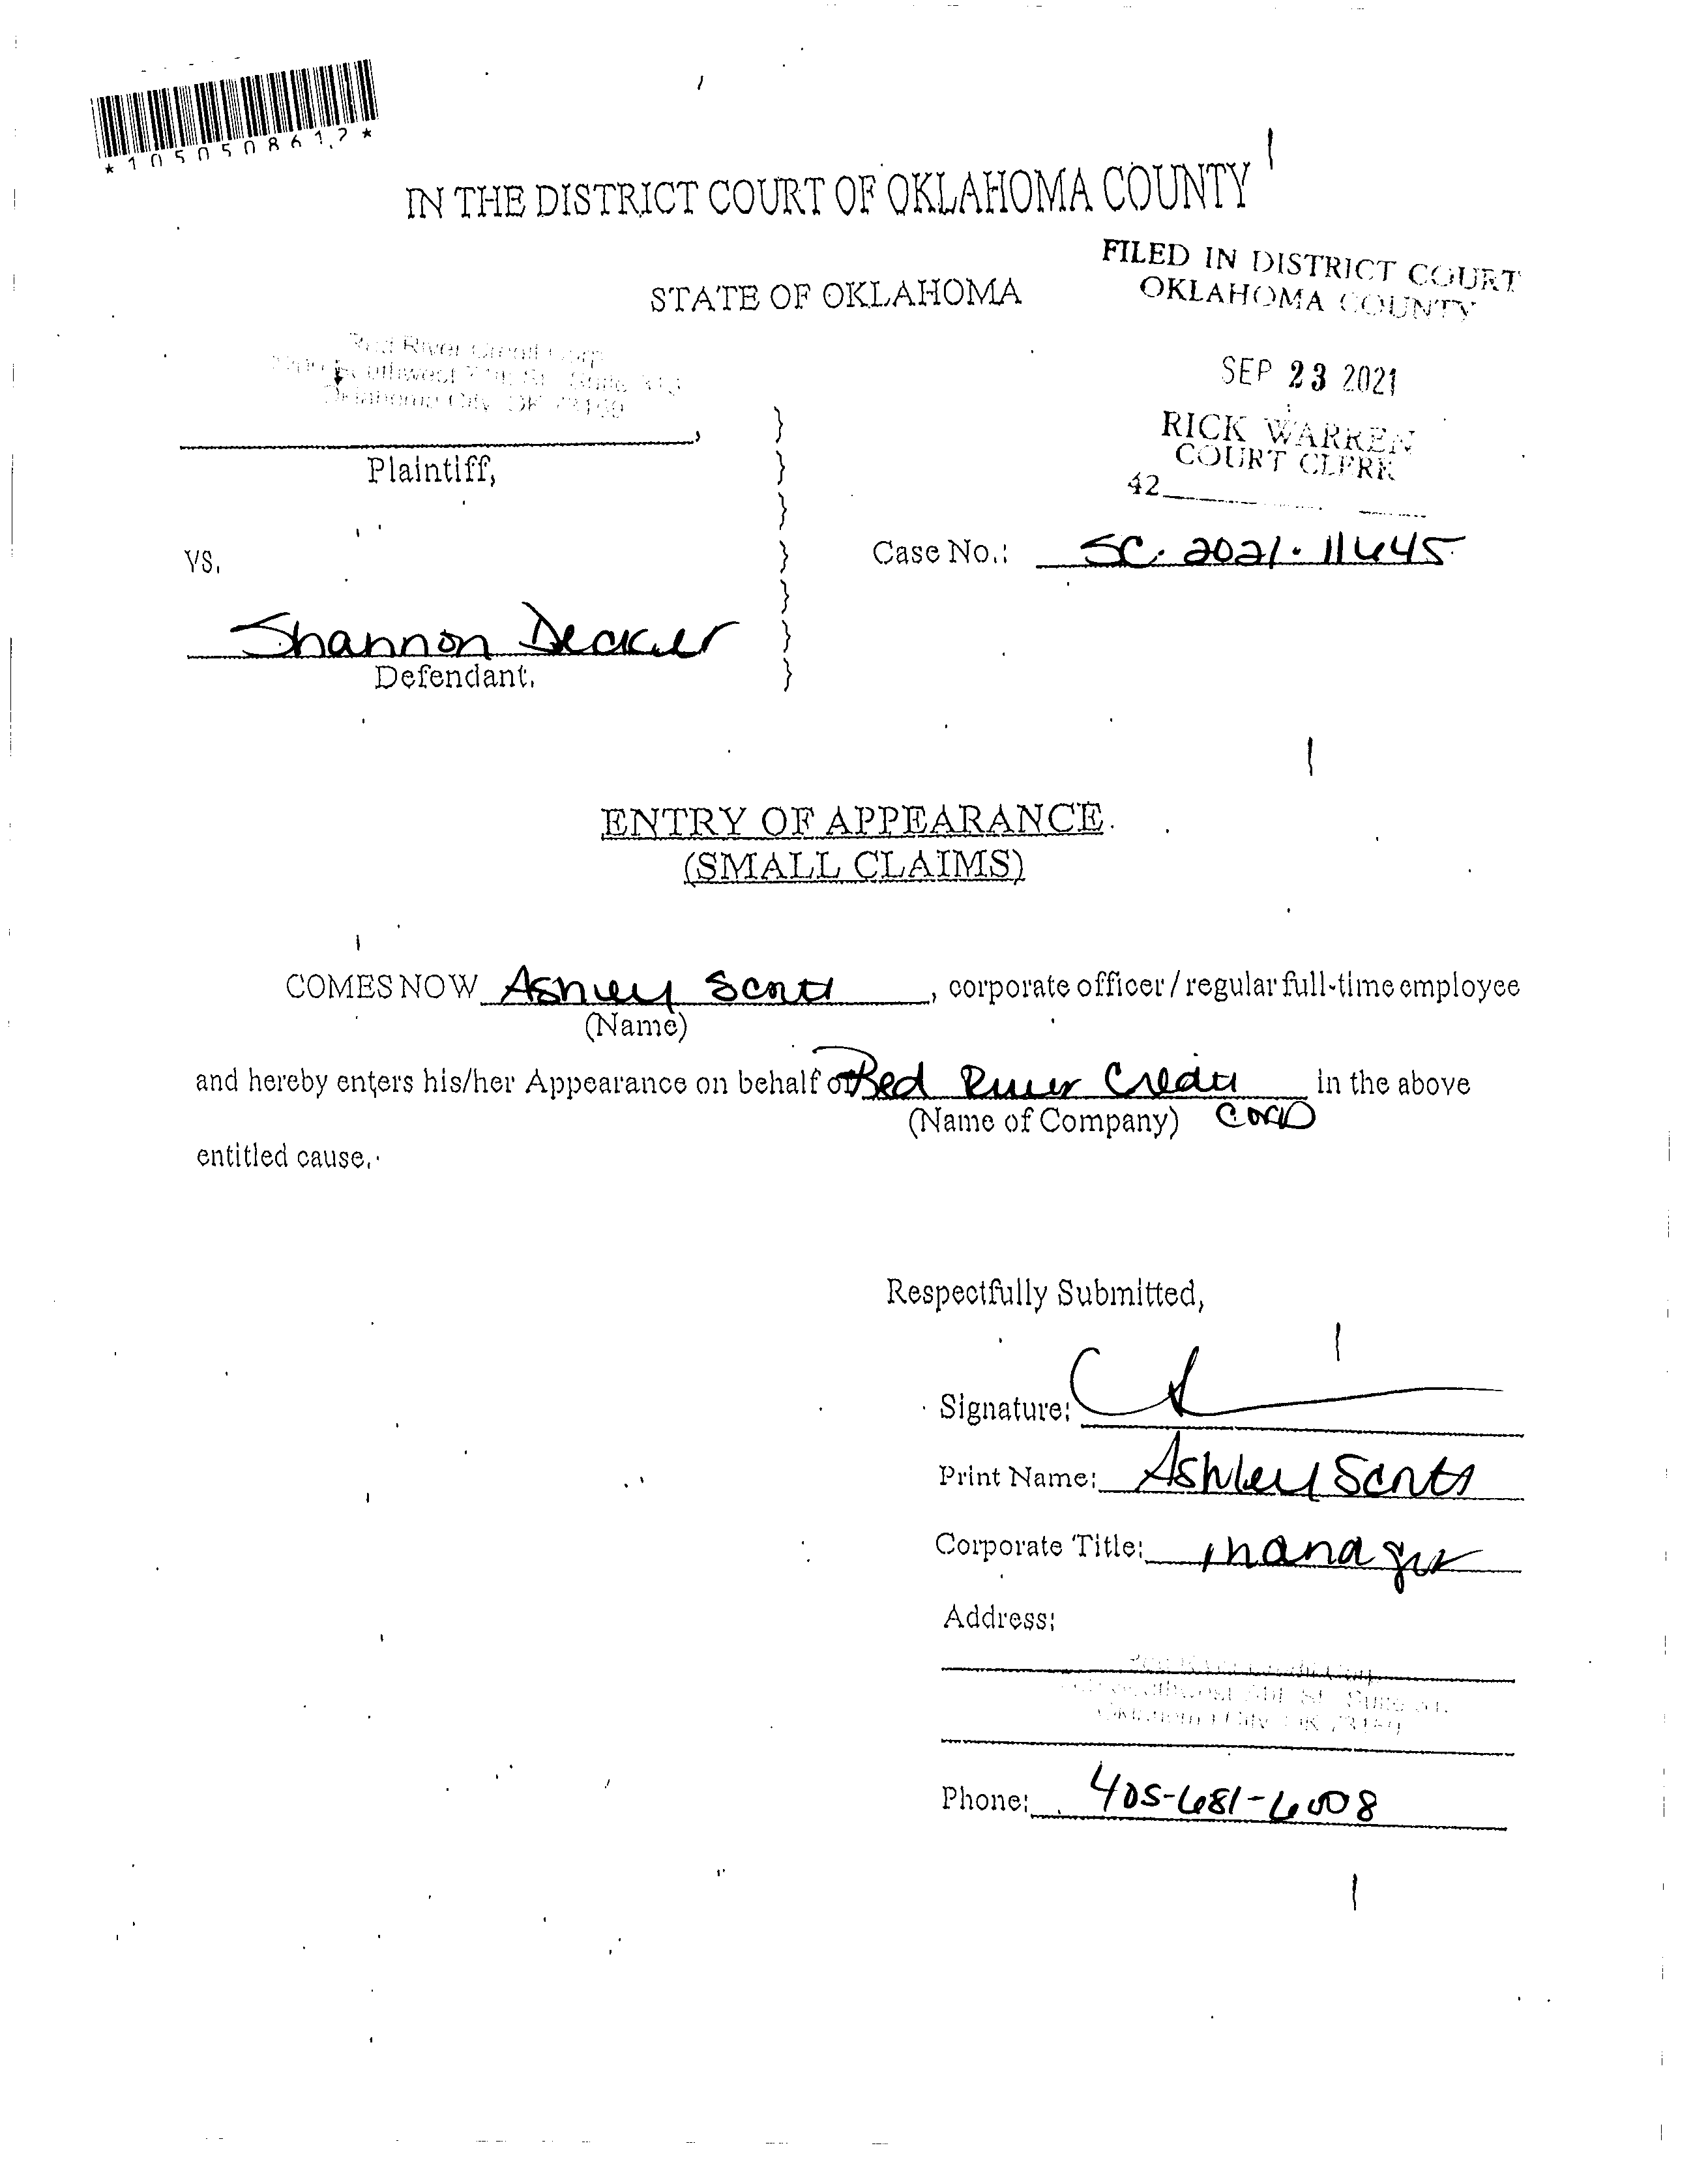 *1050508612*
IN THE DISTRICT COURT OF OKLAHOMA COUNTY
STATE OF OKLAHOMA
FILED IN DISTRICT COURT
OKLAHOMA COUNTY
SEP 23 2021
RICK WARREN
COURT CLERK
42
Red River Credit Corp
Southwest St Suite
Oklahoma City OK 73159
Plaintiff,
vs.
Case No.: SC-2021-11645
Shannon Decker
Defendant.
ENTRY OF APPEARANCE
(SMALL CLAIMS)
COMES NOW Ashley Scott, corporate officer / regular full-time employee
(Name)
and hereby enters his/her Appearance on behalf of Red River Credit in the above
(Name of Company) Corp
entitled cause.
Respectfully Submitted,
Signature:
Print Name: Ashley Scott
Corporate Title: manager
Address:
Red River Credit Corp
Southwest St Suite
Oklahoma City OK 73159
Phone: 405-681-6008